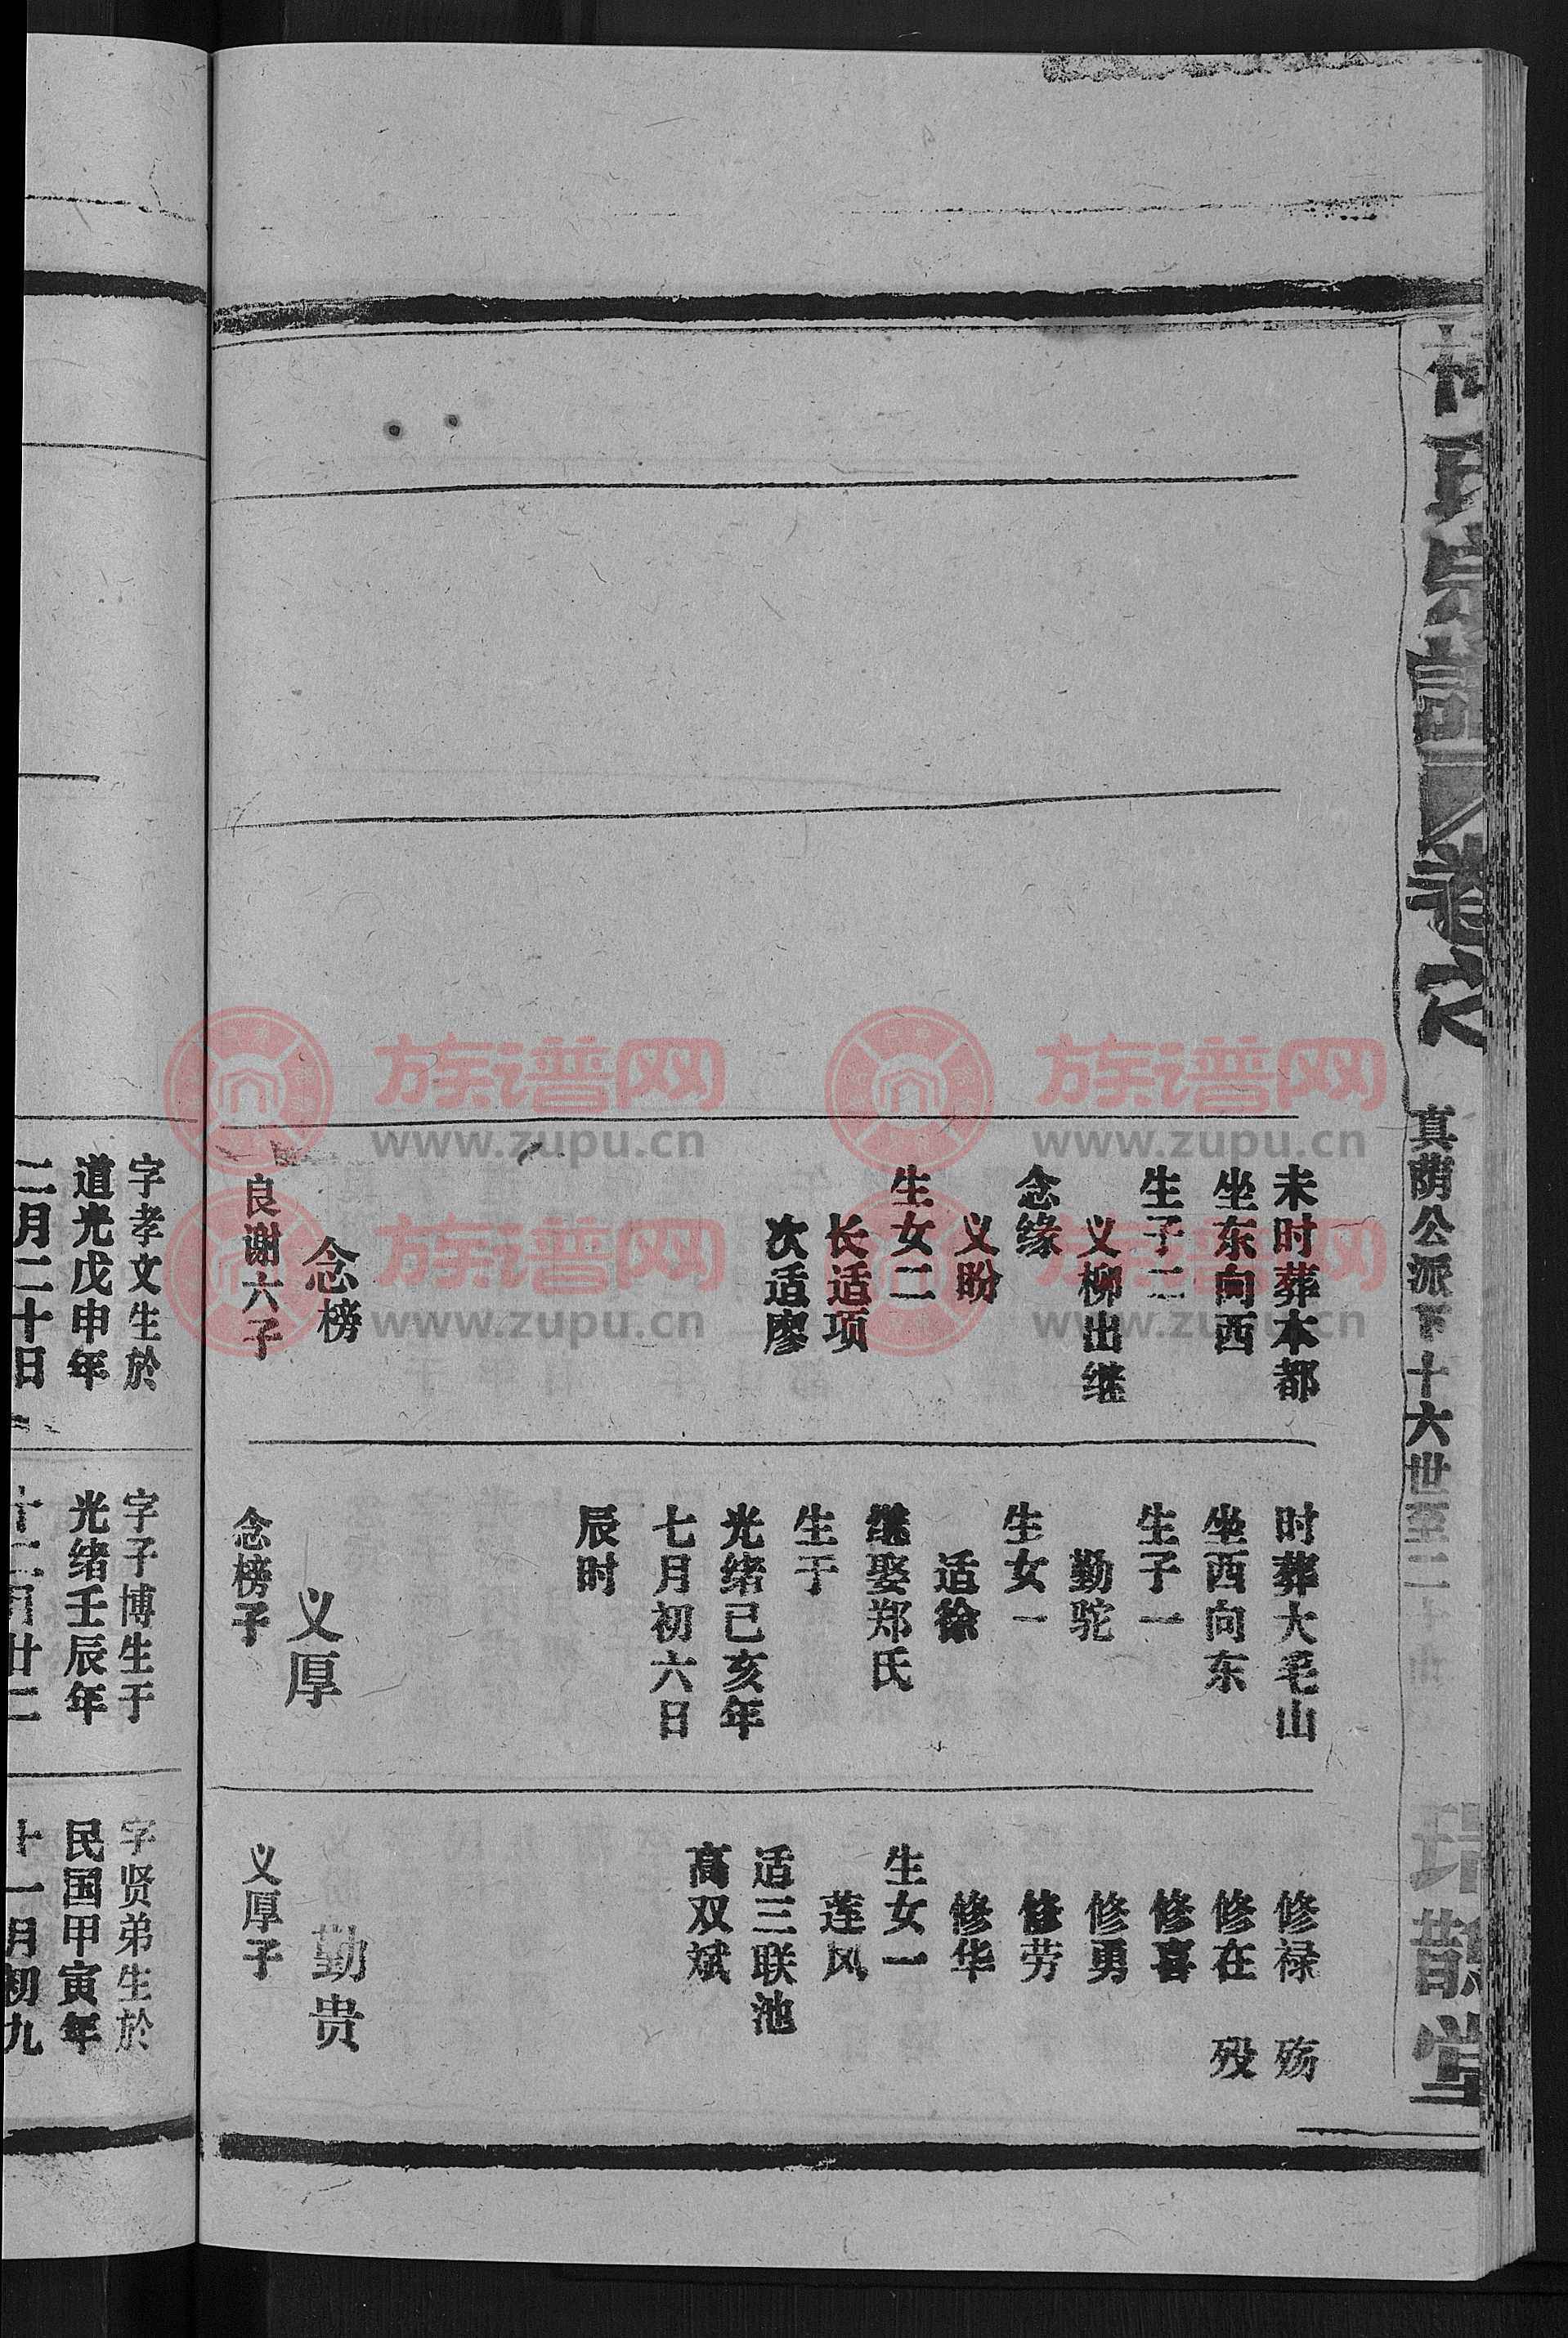 氏宗谱 卷之
真荫公派下十六世至二十
堂
未时葬本都
坐东向西
生子二
义柳出继
念缘
义盼
生女二
长适项
次适廖
念榜
良谢六子
时葬大毛山
坐西向东
生子一
勤驼
生女一
适徐
继娶郑氏
生于
光绪己亥年
七月初六日
辰时
义厚
念榜子
修禄 殇
修在 殁
修喜
修勇
修劳
修华
生女一
莲风
适三联池
高双斌
勤贵
义厚子
字孝文生於
道光戊申年
二月二十日
字子博生于
光绪壬辰年
十二月廿二
字贤弟生於
民国甲寅年
十一月初九
族谱网
www.zupu.cn
族谱网
www.zupu.cn
族谱网
www.zupu.cn
族谱网
www.zupu.cn